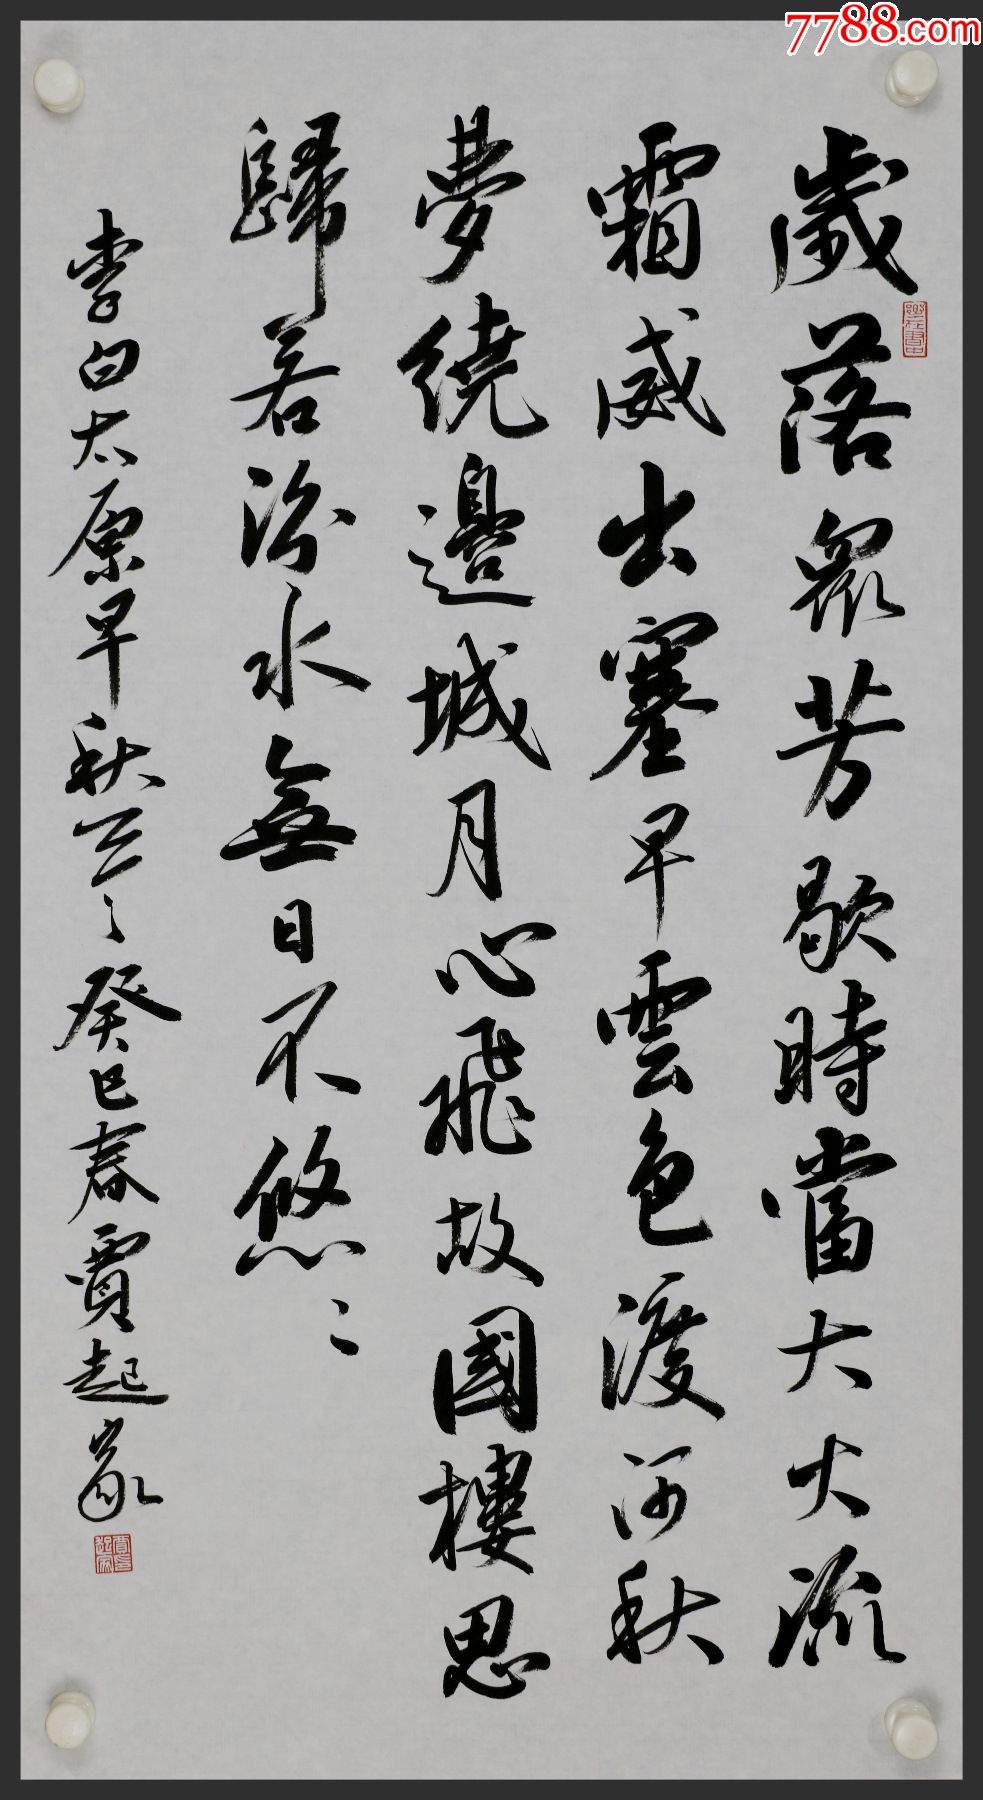 7788.com
歲落眾芳歇時當大火流
霜威出塞早雲色渡河秋
夢繞邊城月心飛故國樓思
歸若汾水無日不悠〻
李白太原早秋云〻癸巳春賈起家